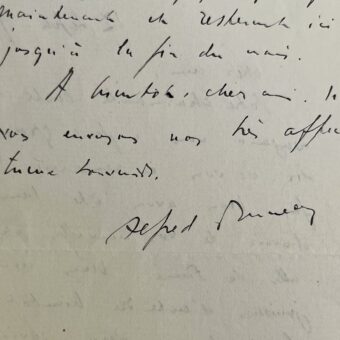 maintenant et resterons ici
jusqu'à la fin du mois.
A bientôt, cher ami.
vos envoyons nos très affec
tueux souvenirs.
Alfred Bruneau